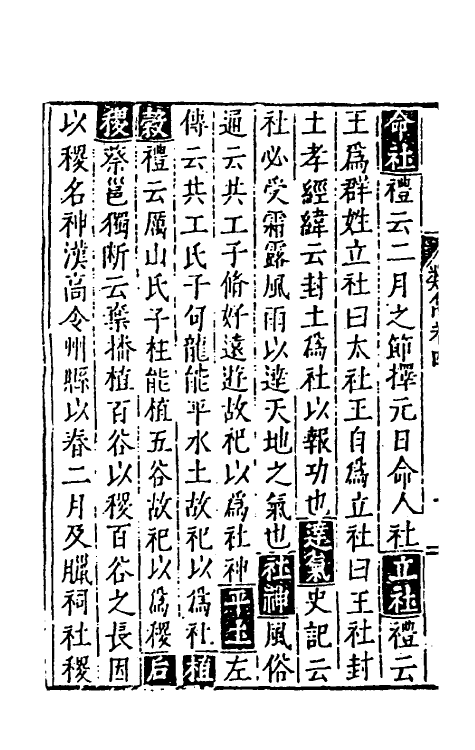 命社禮云二月之節擇元日命人社立社禮云
王爲群姓立社曰太社王自爲立社曰王社封
土孝經緯云封土爲社以報功也達氣史記云
社必受霜露風雨以達天地之氣也社神風俗
通云共工子脩好遠遊故祀以爲社神平土左
傳云共工氏子句龍能平水土故祀以爲社植
穀禮云厲山氏子柱能植五谷故祀以爲稷后
稷蔡邕獨断云棄播植百谷以稷百谷之長因
以稷名神漢高令州縣以春二月及臘祠社稷